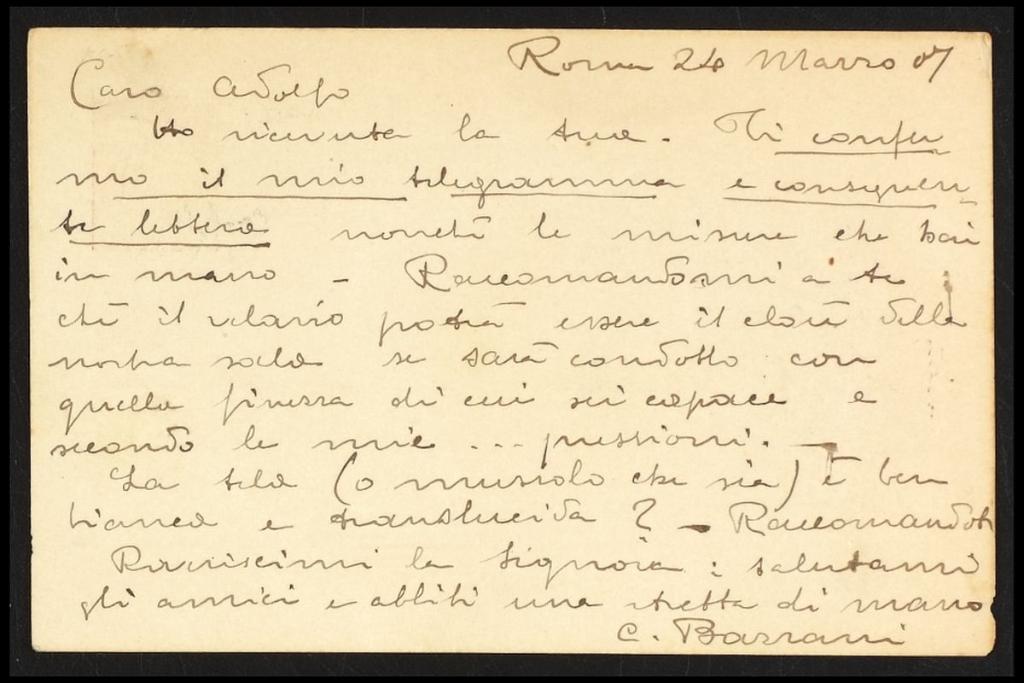 Roma 24 Marzo 07
Caro Adolfo
Ho ricevuta la tua. Ti confer-
mo il mio telegramma e conseguen-
te lettera nonchè le misure che hai
in mano - Raccomandomi a te
chè il velario potrà essere il clou della
nostra sala se sarà condotto con
quella finezza di cui sei capace e
secondo le mie ... pressioni. -
La tela (o mussolo che sia) è ben
bianca e translucida? - Raccomandoti
Riveriscimi la Signora: salutami
gli amici e abbiti una stretta di mano
C. Bazzani